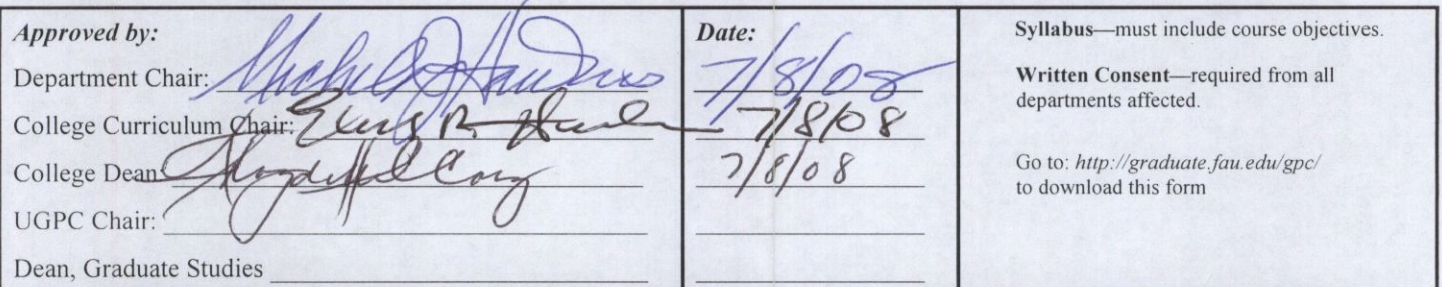 Approved by:
Date:
Department Chair: Michele Hawkins 7/8/08
College Curriculum Chair: 7/8/08
College Dean 7/8/08
UGPC Chair:
Dean, Graduate Studies
Syllabus—must include course objectives.
Written Consent—required from all
departments affected.
Go to: http://graduate.fau.edu/gpc/
to download this form